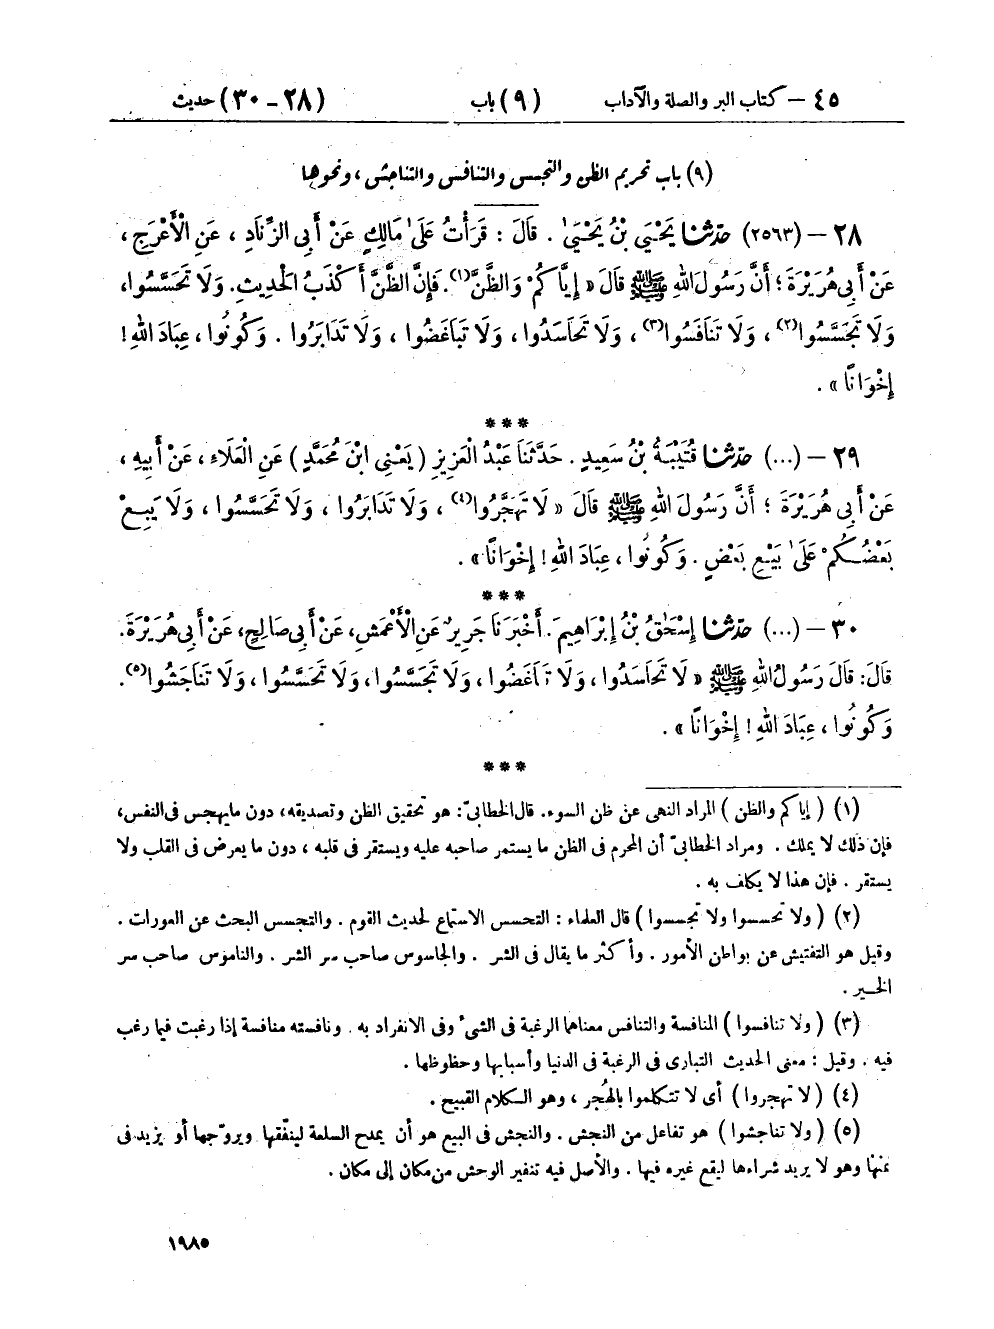 ٤٥ – كتاب البر والصلة والآداب (٩) باب (٢٨ – ٣٠) حديث
(٩) باب تحريم الظن والتجسس والتنافس والتناجش ، ونحوها
٢٨ – (٢٥٦٣) حدّثنا يَحْيَى بْنُ يَحْيَىٰ . قَالَ : قَرَأْتُ عَلَىٰ مَالِكٍ عَنْ أَبِي الزِّنَادِ ، عَنِ الْأَعْرَجِ ،
عَنْ أَبِي هُرَيْرَةَ ؛ أَنَّ رَسُولَ اللهِ ﷺ قَالَ « إِيَّاكُمْ وَالظَّنَّ(١). فَإِنَّ الظَّنَّ أَكْذَبُ الْحَدِيثِ. وَلَا تَحَسَّسُوا،
وَلَا تَجَسَّسُوا(٢) ، وَلَا تَنَافَسُوا(٣) ، وَلَا تَحَاسَدُوا ، وَلَا تَبَاغَضُوا ، وَلَا تَدَابَرُوا . وَكُونُوا ، عِبَادَ اللهِ !
إِخْوَانًا » .
***
٢٩ – (...) حدّثنا قُتَيْبَةُ بْنُ سَعِيدٍ . حَدَّثَنَا عَبْدُ الْعَزِيزِ ( يَعْنِي ابْنَ مُحَمَّدٍ ) عَنِ الْعَلَاءِ ، عَنْ أَبِيهِ ،
عَنْ أَبِي هُرَيْرَةَ ؛ أَنَّ رَسُولَ اللهِ ﷺ قَالَ « لَا تَهَجَّرُوا(٤) ، وَلَا تَدَابَرُوا ، وَلَا تَحَسَّسُوا ، وَلَا يَبِعْ
بَعْضُكُمْ عَلَىٰ بَيْعِ بَعْضٍ . وَكُونُوا ، عِبَادَ اللهِ ! إِخْوَانًا » .
***
٣٠ – (...) حدّثنا إِسْحَٰقُ بْنُ إِبْرَاهِيمَ. أَخْبَرَنَا جَرِيرٌ عَنِ الْأَعْمَشِ، عَنْ أَبِي صَالِحٍ، عَنْ أَبِي هُرَيْرَةَ.
قَالَ: قَالَ رَسُولُ اللهِ ﷺ « لَا تَحَاسَدُوا ، وَلَا تَبَاغَضُوا ، وَلَا تَجَسَّسُوا، وَلَا تَحَسَّسُوا ، وَلَا تَنَاجَشُوا(٥).
وَكُونُوا ، عِبَادَ اللهِ ! إِخْوَانًا » .
***
(١) ( إياكم والظن ) المراد النهى عن ظن السوء. قال الخطابىّ: هو تحقيق الظن وتصديقه، دون مايهجس فى النفس،
فإن ذلك لا يملك . ومراد الخطابىّ أن المحرم فى الظن ما يستمر صاحبه عليه ويستقر فى قلبه ، دون ما يعرض فى القلب ولا
يستقر . فإن هذا لا يكلف به .
(٢) ( ولا تحسسوا ولا تجسسوا ) قال العلماء : التحسس الاستماع لحديث القوم . والتجسس البحث عن العورات .
وقيل هو التفتيش عن بواطن الأمور . وأكثر ما يقال فى الشر . والجاسوس صاحب سر الشر . والناموس صاحب سر
الخير .
(٣) ( ولا تنافسوا ) المنافسة والتنافس معناهما الرغبة فى الشىء وفى الانفراد به . ونافسته منافسة إذا رغبت فيما رغب
فيه . وقيل : معنى الحديث التبارى فى الرغبة فى الدنيا وأسبابها وحظوظها .
(٤) ( لا تهجروا ) أى لا تتكلموا بالهُجر ، وهو الكلام القبيح .
(٥) ( ولا تناجشوا ) هو تفاعل من النجش . والنجش فى البيع هو أن يمدح السلعة لينفّقها ويروّجها أو يزيد فى
ثمنها وهو لا يريد شراءها ليقع غيره فيها . والأصل فيه تنفير الوحش من مكان إلى مكان .
١٩٨٥